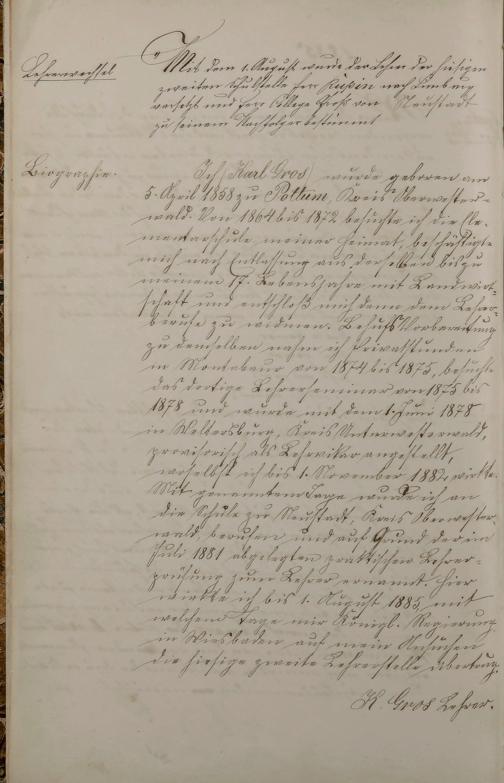 Lehrerwechsel
Mit dem 1. August wurde der Lehrer der hiesigen
zweiten Schulstelle Herr Kuhn nach Limburg
versetzt und Herr College Groß von Neustadt
zu seinem Nachfolger bestimmt
Biographie.
Ich (Karl Gros) wurde geboren am
5. April 1858 zu Pottum, Kreis Oberwester-
wald. Von 1864 bis 1872 besuchte ich die Ele-
mentarschule meiner Heimat, beschäftigte
mich nach Entlassung aus derselben bis zu
meinem 17. Lebensjahre mit Landwirt-
schaft und entschloß mich dann dem Lehrer-
berufe zu widmen. Behufs Vorbereitung
zu demselben nahm ich Privatstunden
in Montabaur von 1874 bis 1875, besuchte
das dortige Lehrerseminar von 1875 bis
1878 und wurde mit dem 1. Juni 1878
in Weltersburg, Kreis Unterwesterwald,
provisorisch als Lehrvikar angestellt,
woselbst ich bis 1. November 1882 wirkte.
Mit genanntem Tage wurde ich an
die Schule zu Neustadt, Kreis Oberwester
wald, berufen und auf Grund der im
Juli 1881 abgelegten praktischen Lehrer-
prüfung zum Lehrer ernannt. Hier
wirkte ich bis 1. August 1885, mit
welchem Tage mir Königl. Regierung
in Wiesbaden auf mein Ansuchen
die hiesige zweite Lehrerstelle übertrug.
K. Gros Lehrer.